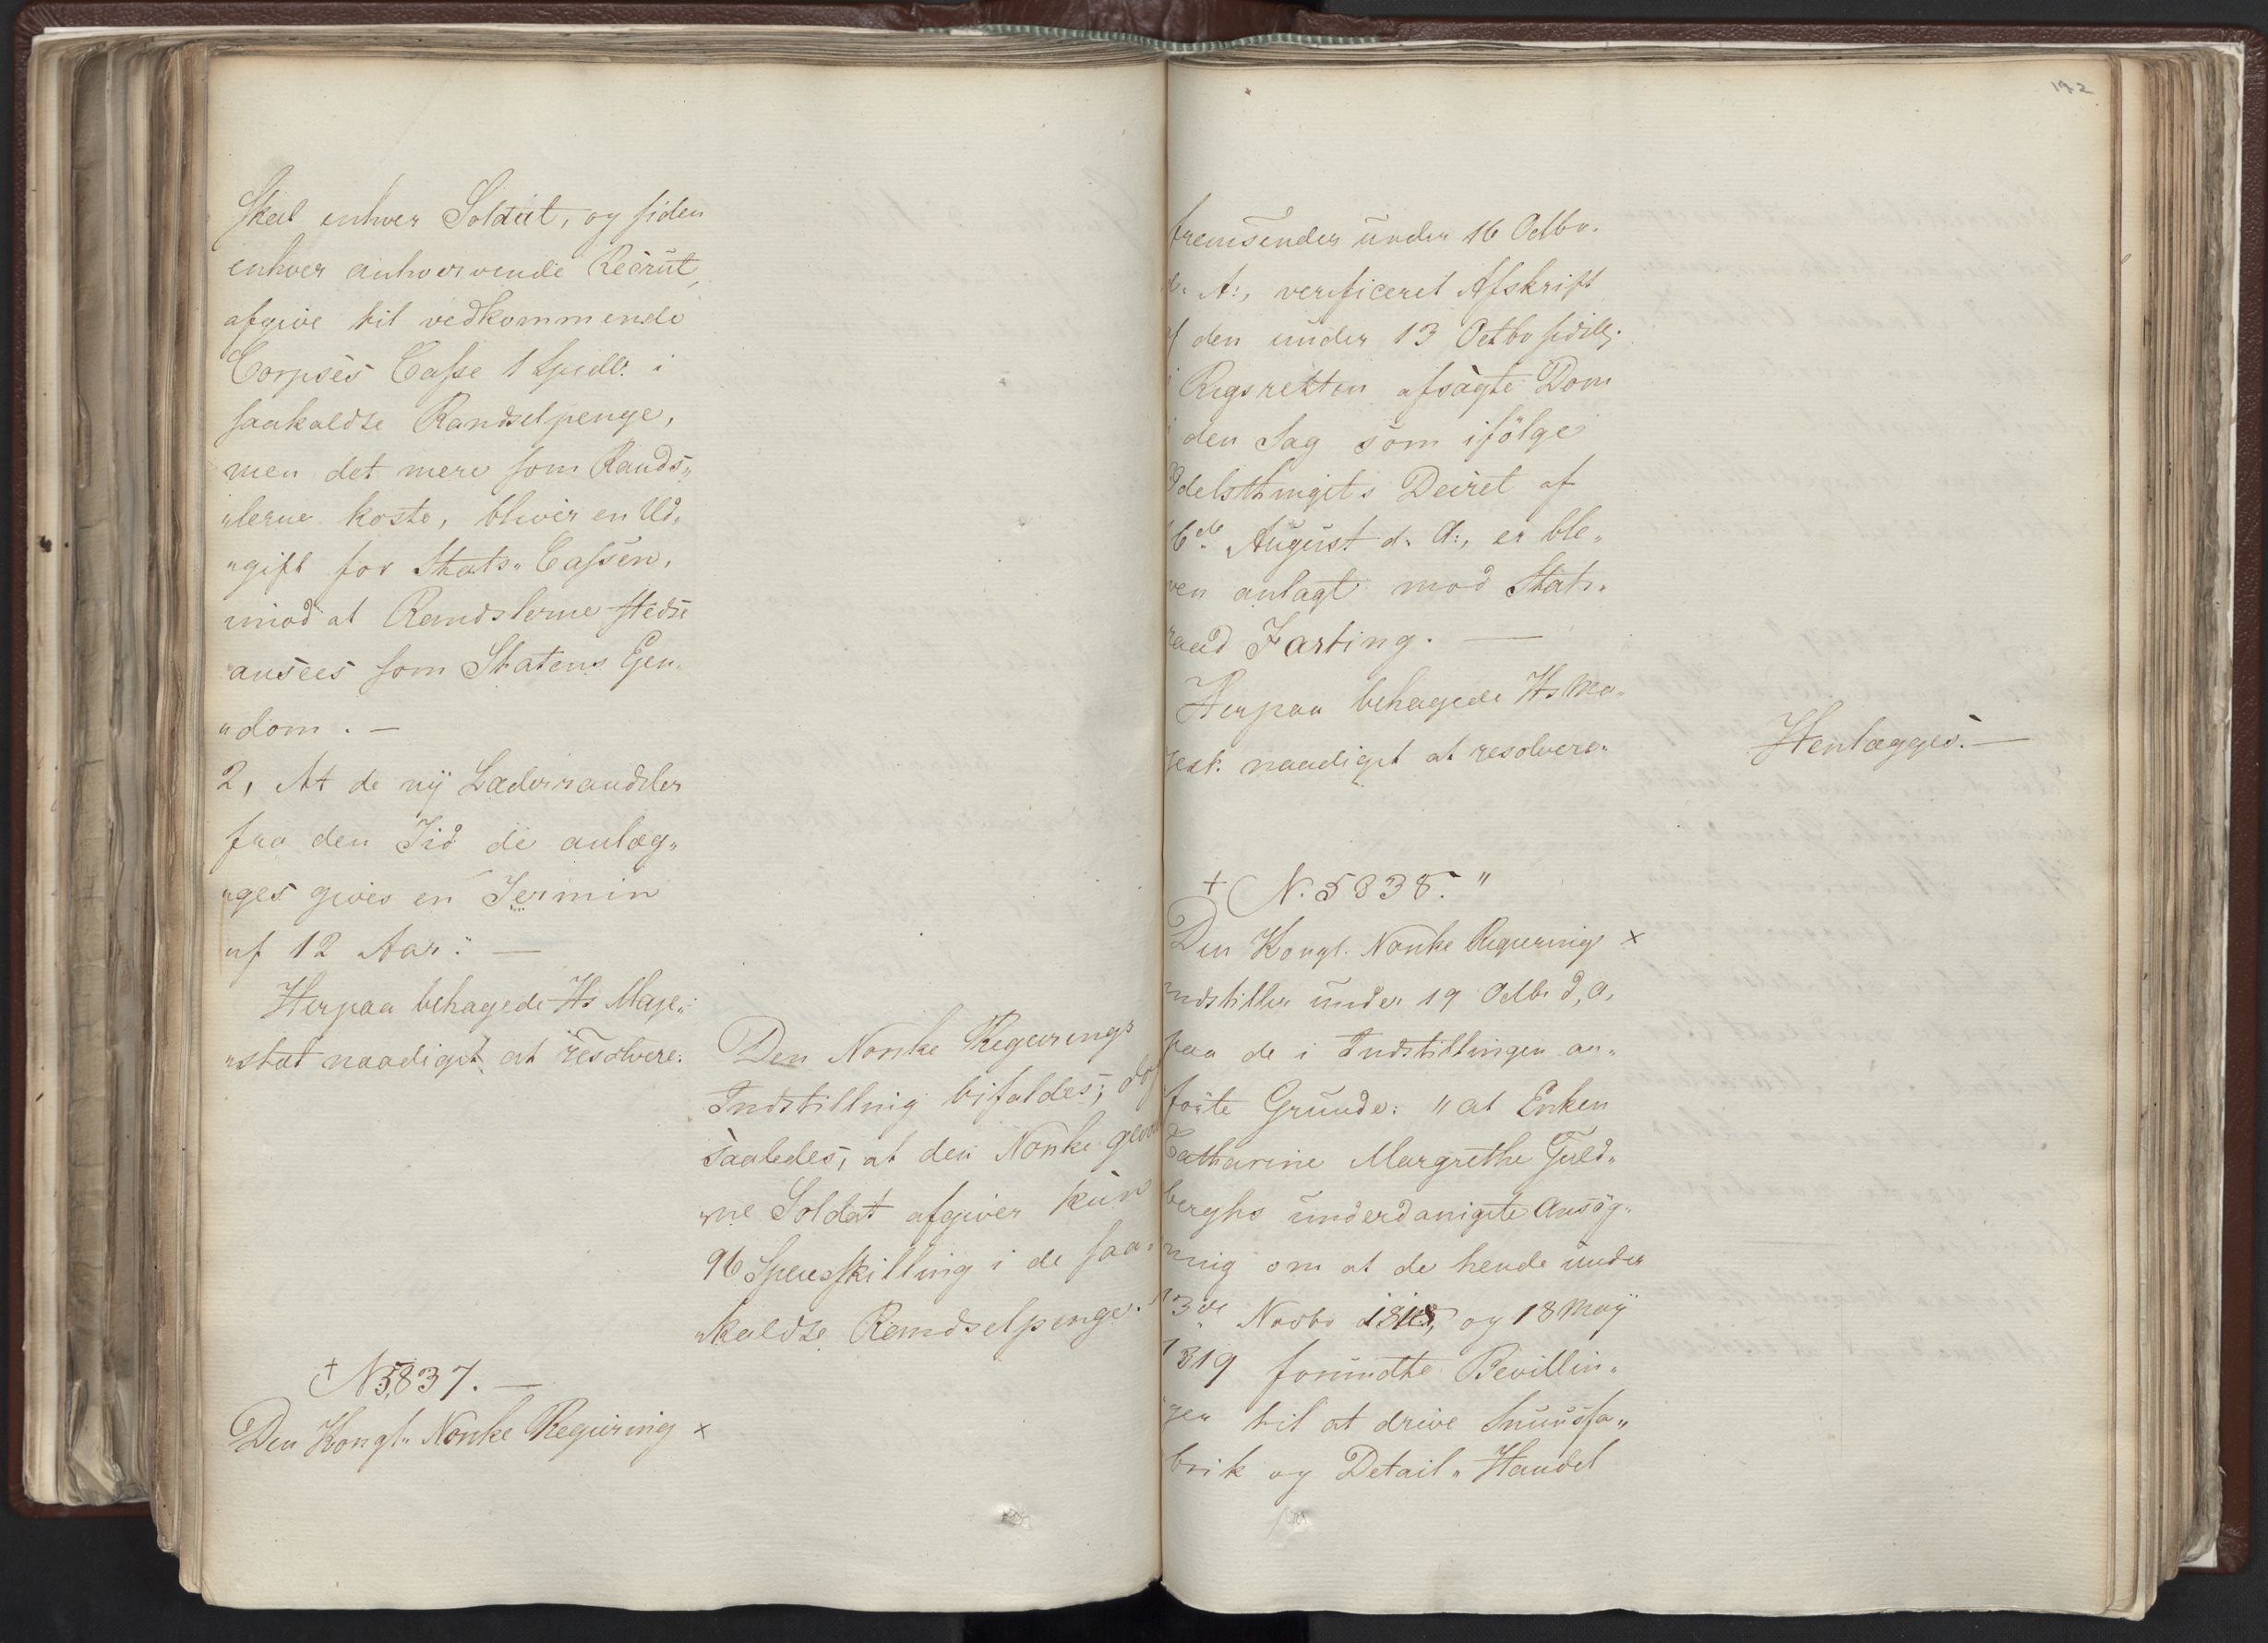 Skal enhver Soldat, og siden
enhver anhvervende Recrut,
afgive til vedkommende
Corpses Casse 1 Spdlr. i
saakaldte Randselpenge,
men det mere som Rands„
„lerne koste, bliver en Ud„
„gift for Stats„Cassen,
imod at Randslerne stedse
ansees som Statens Ejen„
„dom. —
2, At de nÿ Læderrandsler
fra den Tid de anlæg„
„ges gives en Termin
af 12 Aar: —
Herpaa behagede Hs Maje„
„stæt naadigst at resolvere:
Den Norske Regjerings
Indstilling bifaldes; dog
saaledes, at den Norske gevor
„ne Soldat afgiver kun
96 Speciesskilling i de saa„
„kaldte Randselpenge.
† N 5,837. —
Den Kongl. Norske Regjering ×
192
fremsender under 16 Octbr.
d. A:, verificeret Afskrift
af den under 13 Octbr sidstl.
i Rigsretten afsagte Dom
i den Sag som ifölge
Odelsthingets Decret af
6de August d. A:, er ble„
ven anlagt mod Stats„
raad Fasting. —
Herpaa behagede Hs Ma„
jest. naadigst at resolvere„
Henlægges. —
† N. 5838. "
Den Kongl. Norske Regjering ×
indstiller under 19 Octbr d, A,
paa de i Indstillingen an„
förte Grunde: „at Enken
Catharine Margrethe Guld„
berghs underdanigste Ansøg„
ning om at de hende under
13de Novbr 1818, og 18 Maÿ
1819 forundte Bevillin„
ger til at drive Snuusfa„
brik og Detail„Handel